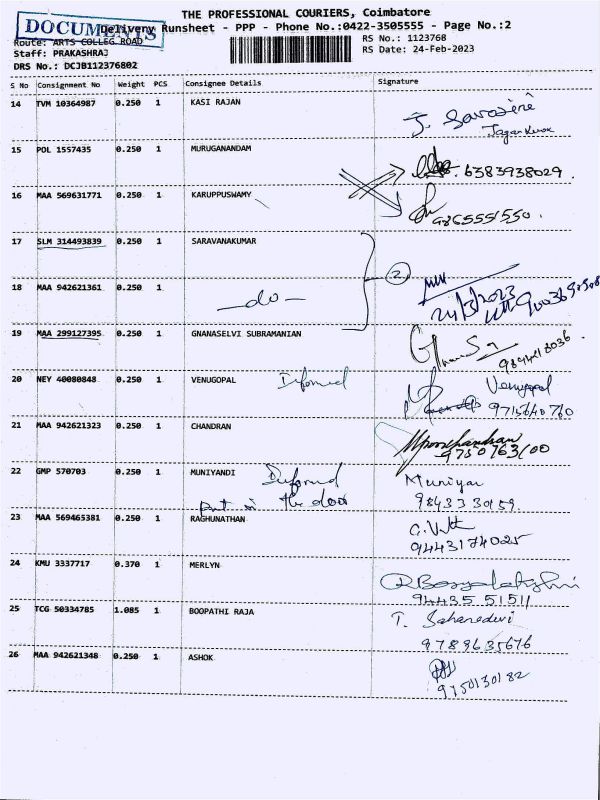 THE PROFESSIONAL COURIERS, Coimbatore
DOCUMENTS
Delivery Runsheet - PPP - Phone No.:0422-3505555 - Page No.:2
Route: ARTS COLLEG ROAD
RS No.: 1123768
Staff: PRAKASHRAJ
RS Date: 24-Feb-2023
DRS No.: DCJB112376802
S No Consignment No Weight PCS Consignee Details Signature
14 TVM 10364987 0.250 1 KASI RAJAN
15 POL 1557435 0.250 1 MURUGANANDAM 6383938029
16 MAA 569631771 0.250 1 KARUPPUSWAMY 9865551550
17 SLM 314493839 0.250 1 SARAVANAKUMAR
2
18 MAA 942621361 0.250 1 -do-
19 MAA 299127395 0.250 1 GNANASELVI SUBRAMANIAN
20 NEY 40080848 0.250 1 VENUGOPAL Informed Venugopal
9715640760
21 MAA 942621323 0.250 1 CHANDRAN
9750763100
22 GMP 570703 0.250 1 MUNIYANDI Informed
Put in the door
9843330159
23 MAA 569465381 0.250 1 RAGHUNATHAN
9443174025
24 KMU 3337717 0.370 1 MERLYN
94435 51511
25 TCG 50334785 1.085 1 BOOPATHI RAJA
9789635676
26 MAA 942621348 0.250 1 ASHOK
9750130182